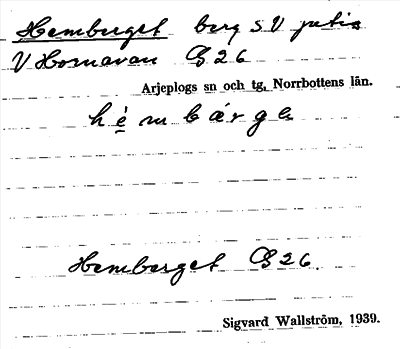 Hemberget berg SV
V Hornavan 26
Arjeplogs sn och tg, Norrbottens län.
hè̩mbárge
Hemberget 26.
Sigvard Wallström, 1939.